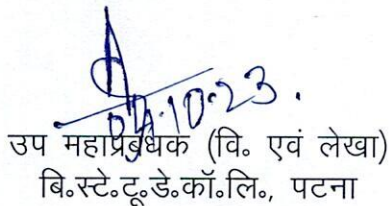 04.10.23.
उप महाप्रबंधक (वि॰ एवं लेखा)
बि॰स्टे॰टू॰डे॰कॉ॰लि॰, पटना